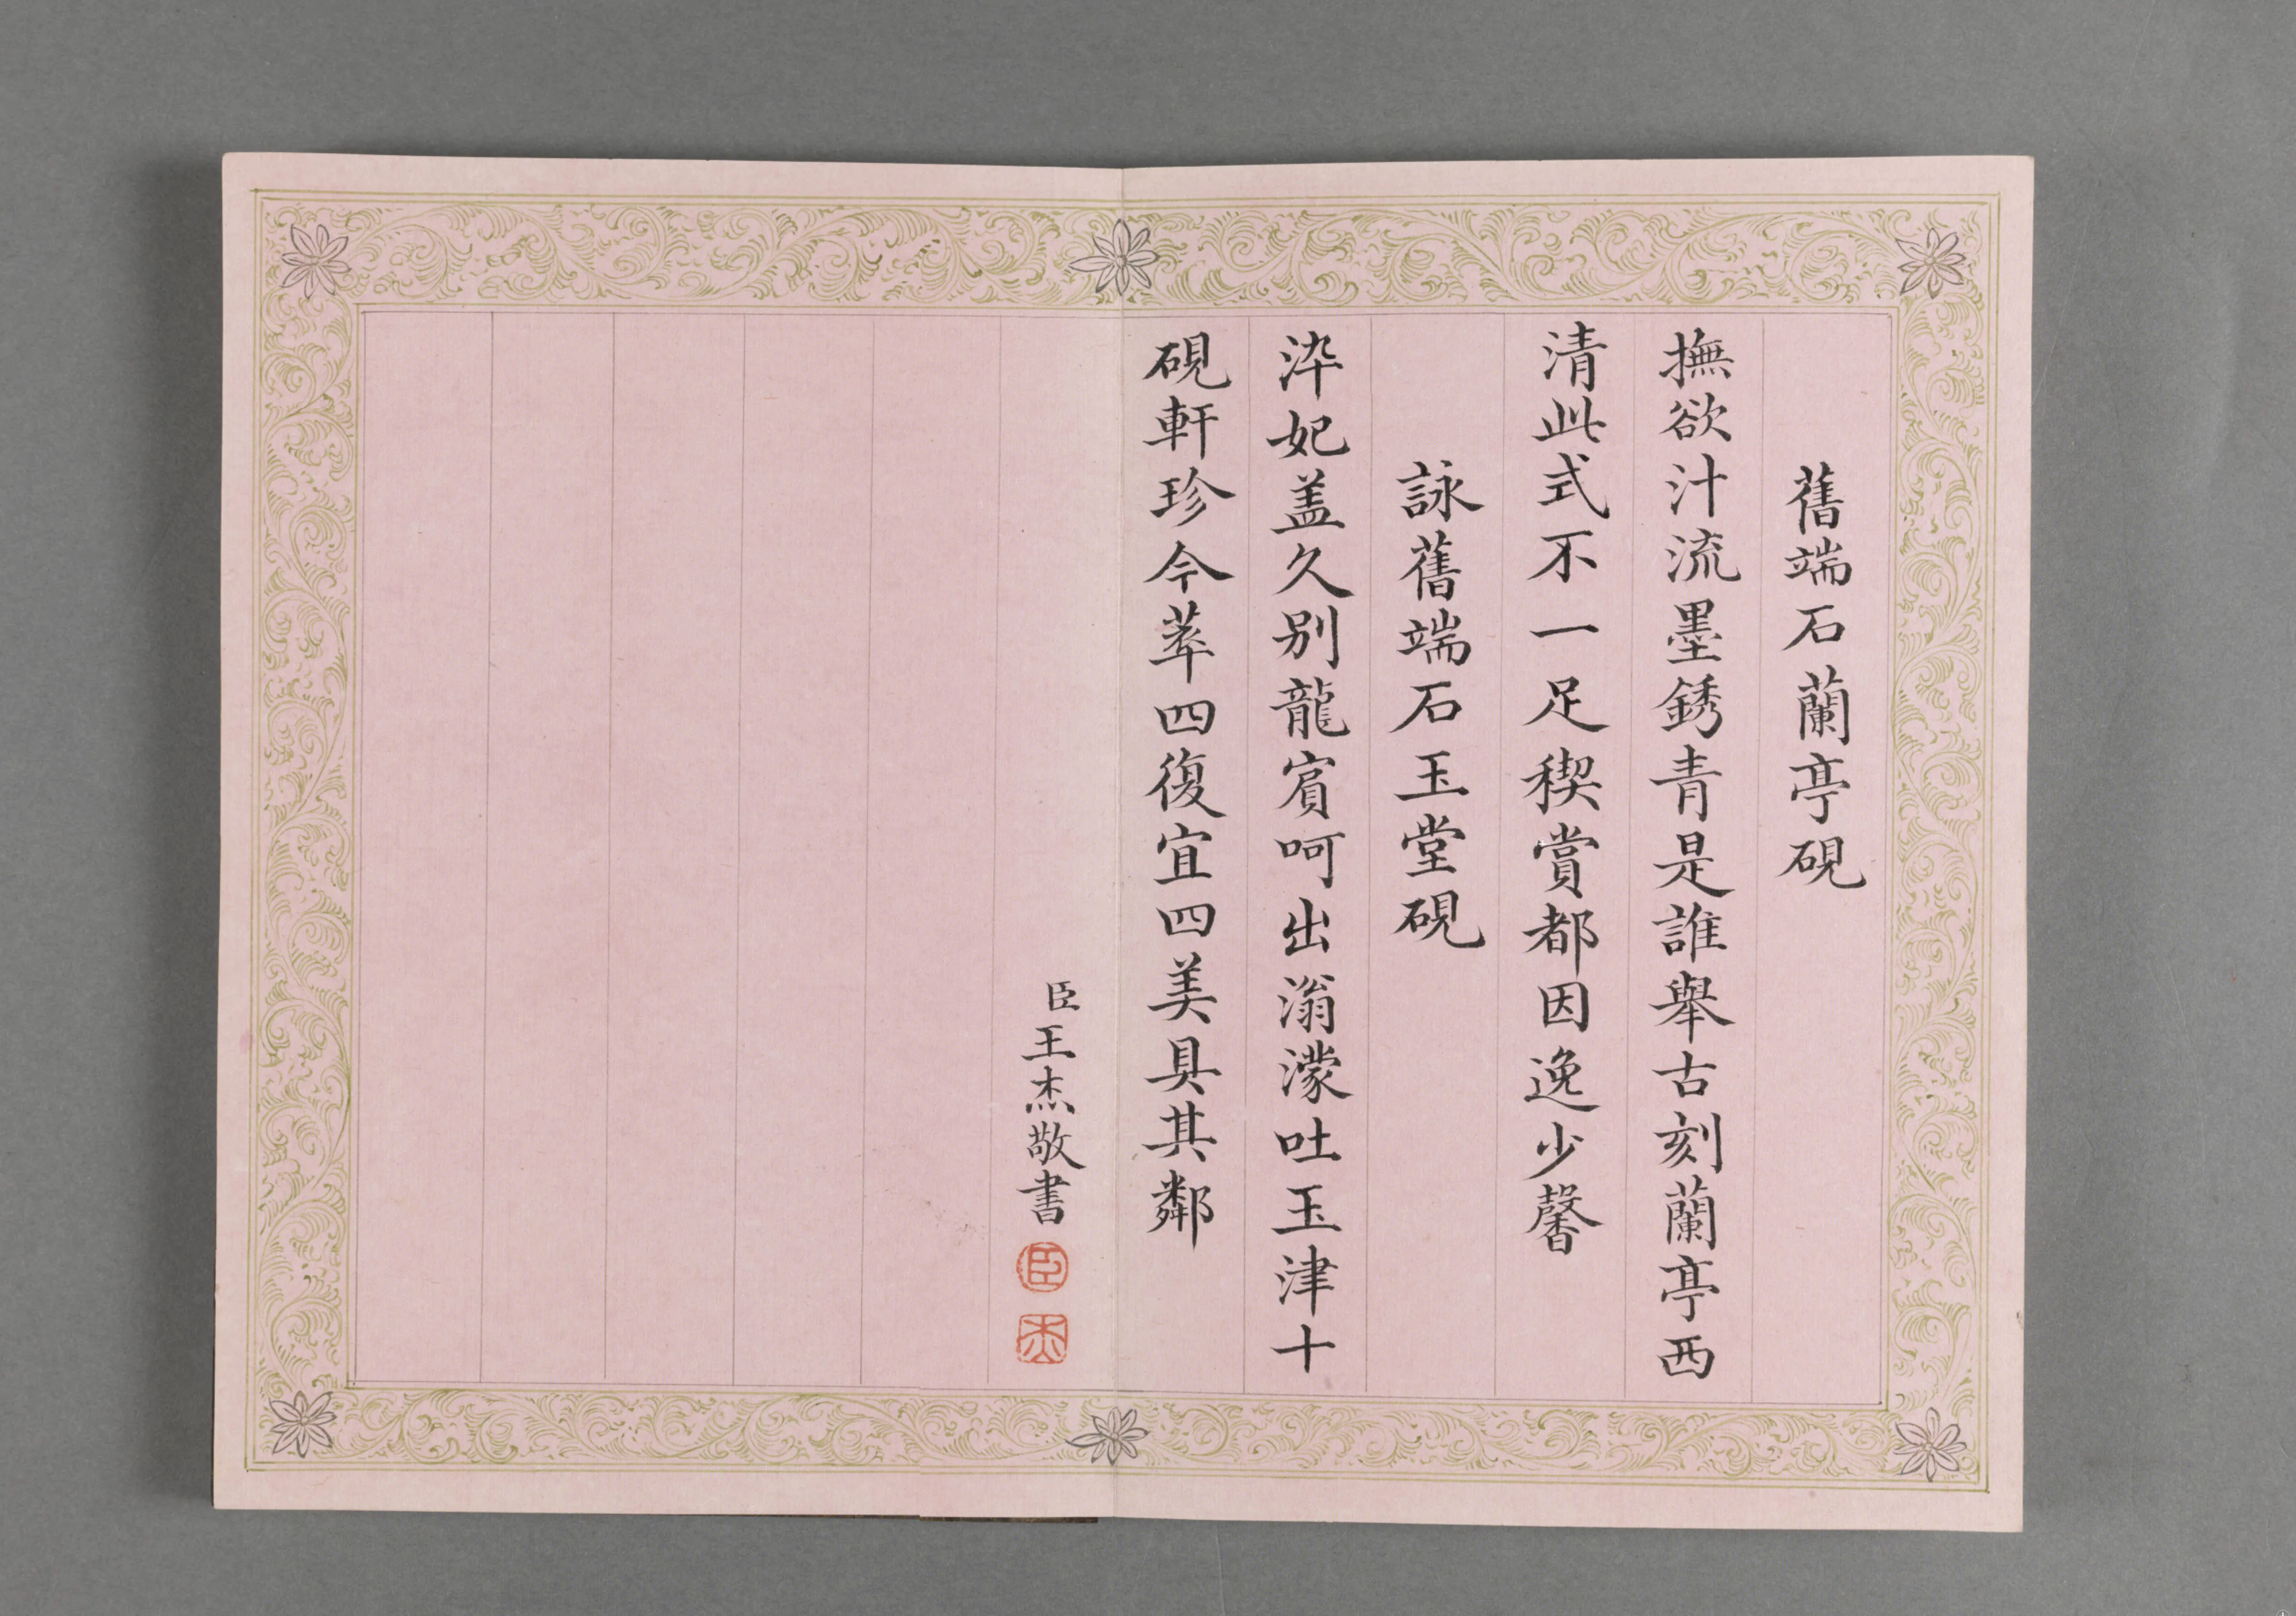 舊端石蘭亭硯
撫欲汁流墨銹青是誰舉古刻蘭亭西
清此式不一足稧賞都因逸少馨
詠舊端石玉堂硯
泮妃盖久别龍賓呵出滃濛吐玉津十
硯軒珍今萃四復宜四美具其鄰
臣王杰敬書
臣
杰